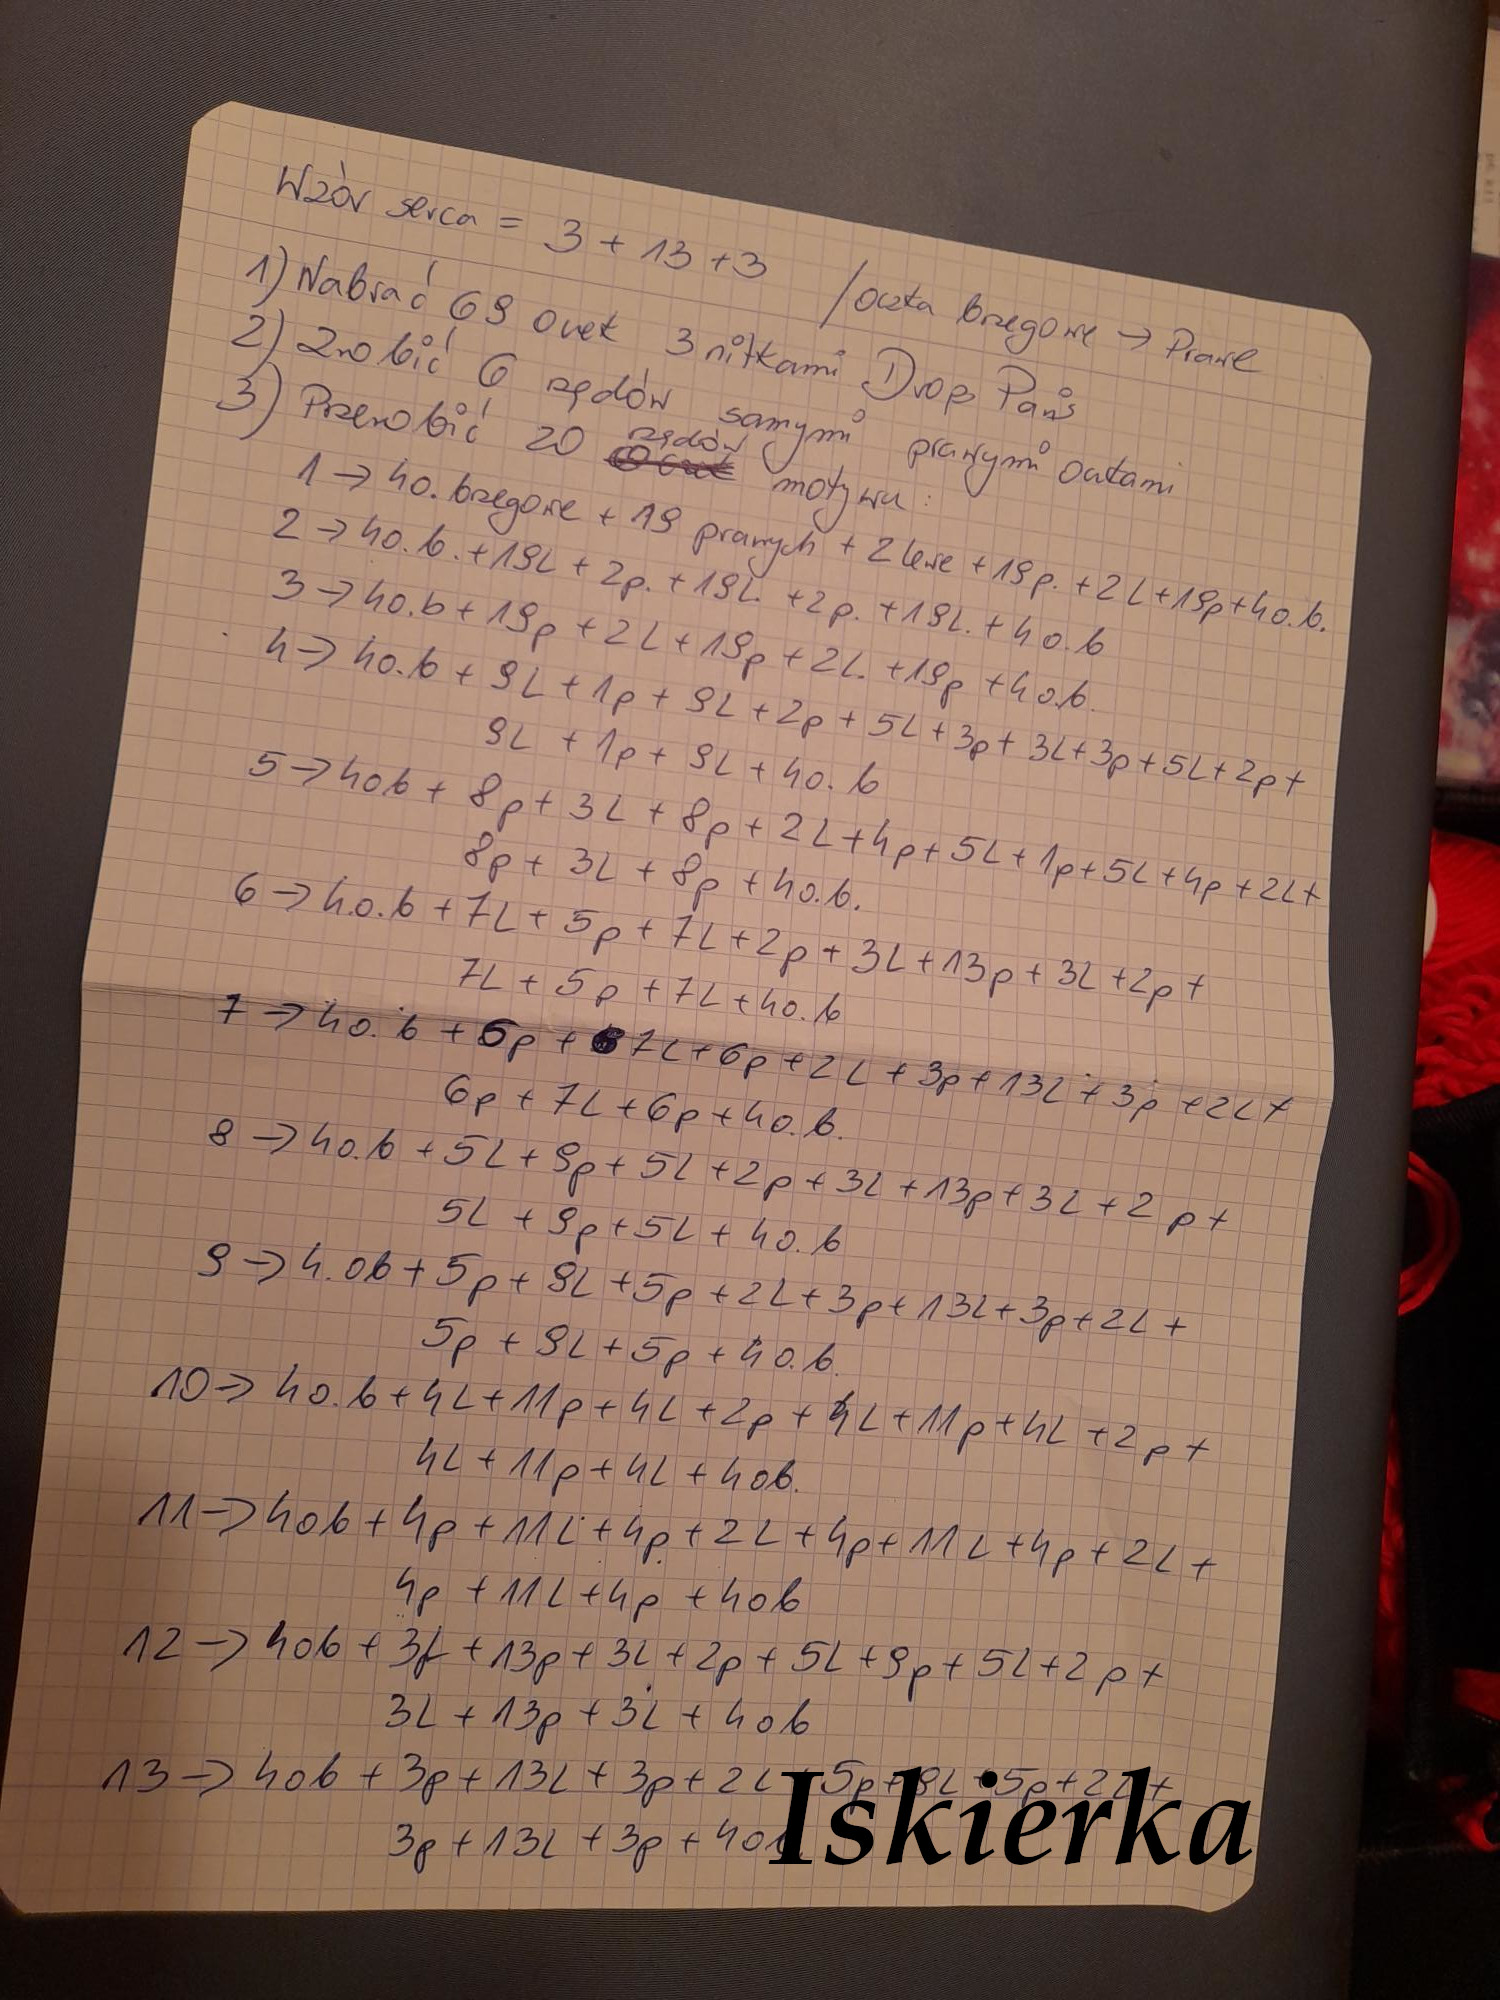 Wzór serca = 3 + 13 + 3 / oczka brzegowe → Prawe
1) Nabrać 69 oczek 3 nitkami Drops Paris
2) Zrobić 6 rzędów samymi prawymi oczkami
3) Przerobić 20 rzędów motywu:
1 → 4o. brzegowe + 19 prawych + 2 lewe + 19p. + 2L + 19p + 4o.b.
2 → 4o.b. + 19L + 2p. + 19L. + 2p. + 19L. + 4o.b
3 → 4o.b + 19p + 2L + 19p + 2L. + 19p + 4o.b.
4 → 4o.b + 9L + 1p + 9L + 2p + 5L + 3p + 3L + 3p + 5L + 2p +
9L + 1p + 9L + 4o.b
5 → 4ob + 8p + 3L + 8p + 2L + 4p + 5L + 1p + 5L + 4p + 2L +
8p + 3L + 8p + 4o.b.
6 → 4.o.b + 7L + 5p + 7L + 2p + 3L + 13p + 3L + 2p +
7L + 5p + 7L + 4o.b
7 → 4o.b + 6p + 7L + 6p + 2L + 3p + 13L + 3p + 2L +
6p + 7L + 6p + 4o.b.
8 → 4o.b + 5L + 9p + 5L + 2p + 3L + 13p + 3L + 2p +
5L + 9p + 5L + 4o.b
9 → 4.ob + 5p + 9L + 5p + 2L + 3p + 13L + 3p + 2L +
5p + 9L + 5p + 4o.b.
10 → 4o.b + 4L + 11p + 4L + 2p + 4L + 11p + 4L + 2p +
4L + 11p + 4L + 4ob.
11 → 4ob + 4p + 11L + 4p + 2L + 4p + 11L + 4p + 2L +
4p + 11L + 4p + 4ob
12 → 4ob + 3L + 13p + 3L + 2p + 5L + 9p + 5L + 2p +
3L + 13p + 3L + 4ob
13 → 4ob + 3p + 13L + 3p + 2L + 5p + 9L + 5p + 2L +
3p + 13L + 3p + 4ob
Iskierka